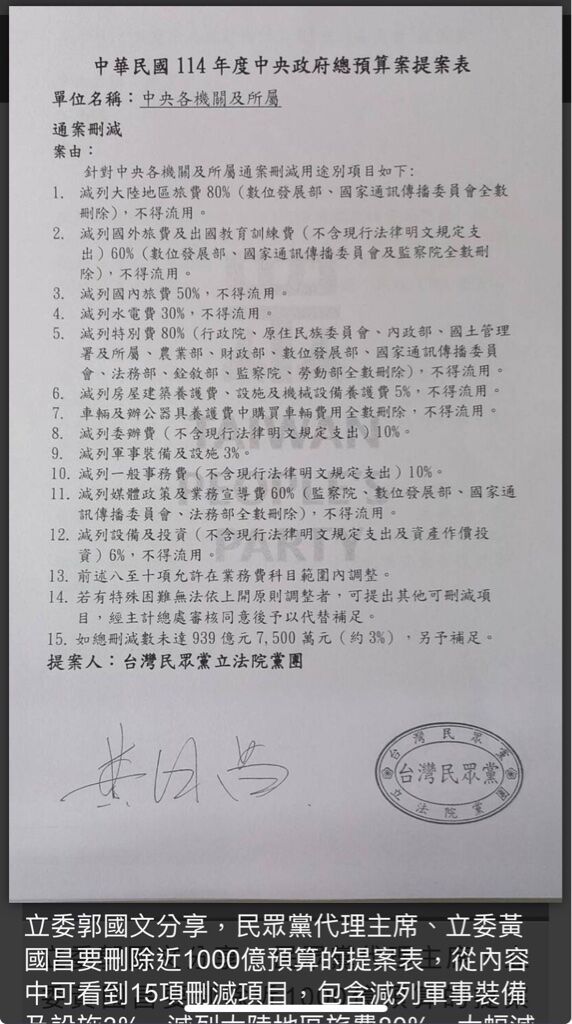 中華民國 114 年度中央政府總預算案提案表
單位名稱：中央各機關及所屬
通案刪減
案由：
針對中央各機關及所屬通案刪減用途別項目如下:
1. 減列大陸地區旅費 80% (數位發展部、國家通訊傳播委員會全數
刪除)，不得流用。
2. 減列國外旅費及出國教育訓練費 (不含現行法律明文規定支
出) 60% (數位發展部、國家通訊傳播委員會及監察院全數刪
除)，不得流用。
3. 減列國內旅費 50%，不得流用。
4. 減列水電費 30%，不得流用。
5. 減列特別費 80% (行政院、原住民族委員會、內政部、國土管理
署及所屬、農業部、財政部、數位發展部、國家通訊傳播委員
會、法務部、銓敘部、監察院、勞動部全數刪除)，不得流用。
6. 減列房屋建築養護費、設施及機械設備養護費 5%，不得流用。
7. 車輛及辦公器具養護費中購買車輛費用全數刪除，不得流用。
8. 減列委辦費 (不含現行法律明文規定支出) 10%。
9. 減列軍事裝備及設施 3%。
10. 減列一般事務費 (不含現行法律明文規定支出) 10%。
11. 減列媒體政策及業務宣導費 60% (監察院、數位發展部、國家通
訊傳播委員會、法務部全數刪除)，不得流用。
12. 減列設備及投資 (不含現行法律明文規定支出及資產作價投
資) 6%，不得流用。
13. 前述八至十項允許在業務費科目範圍內調整。
14. 若有特殊困難無法依上開原則調整者，可提出其他可刪減項
目，經主計總處審核同意後予以代替補足。
15. 如總刪減數未達 939 億元 7,500 萬元 (約 3%)，另予補足。
TAIWAN
PEOPLE'S
PARTY
提案人：台灣民眾黨立法院黨團
黃國昌
台灣民眾黨
台灣民眾黨
立法院黨團
立委郭國文分享，民眾黨代理主席、立委黃
國昌要刪除近1000億預算的提案表，從內容
中可看到15項刪減項目，包含減列軍事裝備
及設施3%、減列大陸地區旅費80%、大幅減